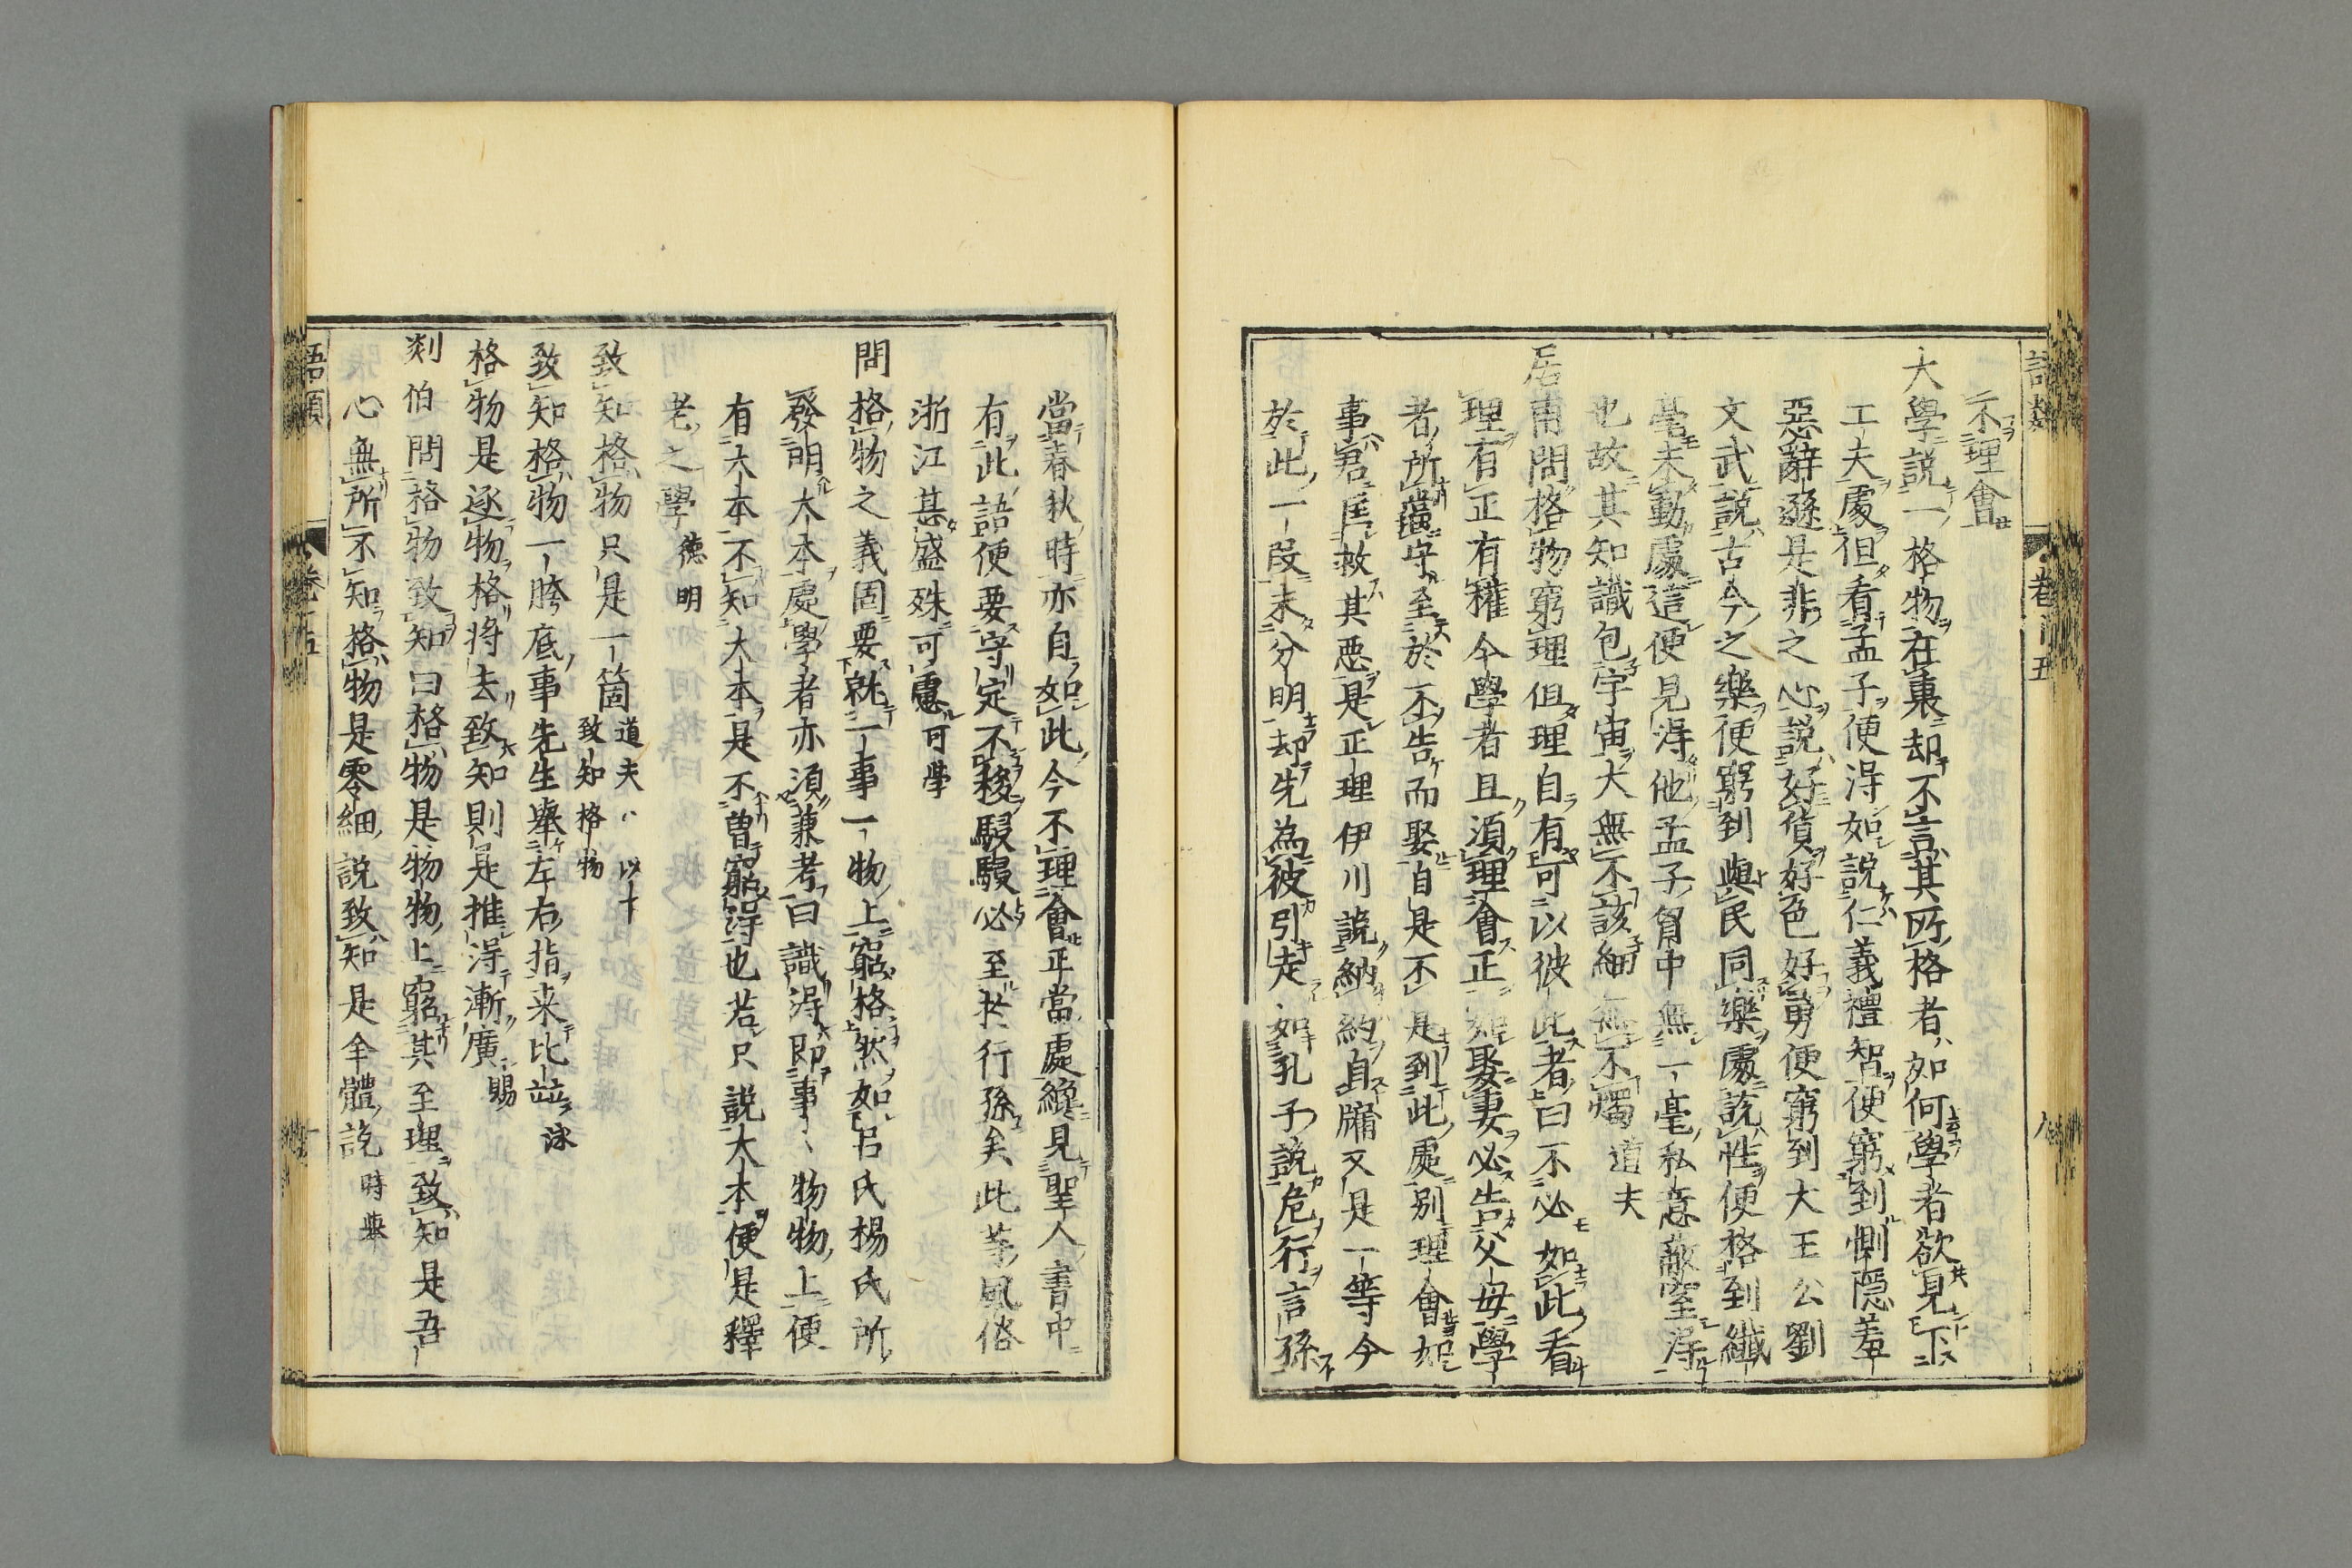 語類
卷十五
八
不理會
大學說一格物在裏却不言其所格者如何學者欲見下
工夫處但看孟子便得如說仁義禮智便窮到惻隱羞
惡辭遜是非之心說好貨好色好勇便窮到大王公劉
文武說古今之樂便窮到與民同樂處說性便格到纖
毫未動處這便見得他孟子胷中無一毫私意蔽窒得
也故其知識包宇宙大無不該細無不燭道夫
居甫問格物窮理但理自有可以彼此者曰不必如此看
理有正有權今學者且湏理會正如娶妻必告父母學
者所當守至於不告而娶自是不是到此處別理會如
事君匡救其惡是正理伊川說納約自牖又是一等今
於此一段未分明却先為彼引走如孔子說危行言孫
當春秋時亦自如此今不理會正當處纔見聖人書中
有此語便要守定不移駸駸必至於行孫矣此等風俗
浙江甚盛殊可慮可學
問格物之義固要就一事一物上窮格然如呂氏楊氏所
發明大本處學者亦須兼考曰識得即事事物物上便
有大本不知大本是不曾窮得也若只說大本便是釋
老之學德明
致知格物只是一箇道夫以下致知格物
致知格物一胯底事先生舉左右指来比竝泳
格物是逐物格將去致知則是推得漸廣賜
剡伯問格物致知曰格物是物物上窮其至理致知是吾
心無所不知格物是零細說致知是全體說時舉
語類
卷十五